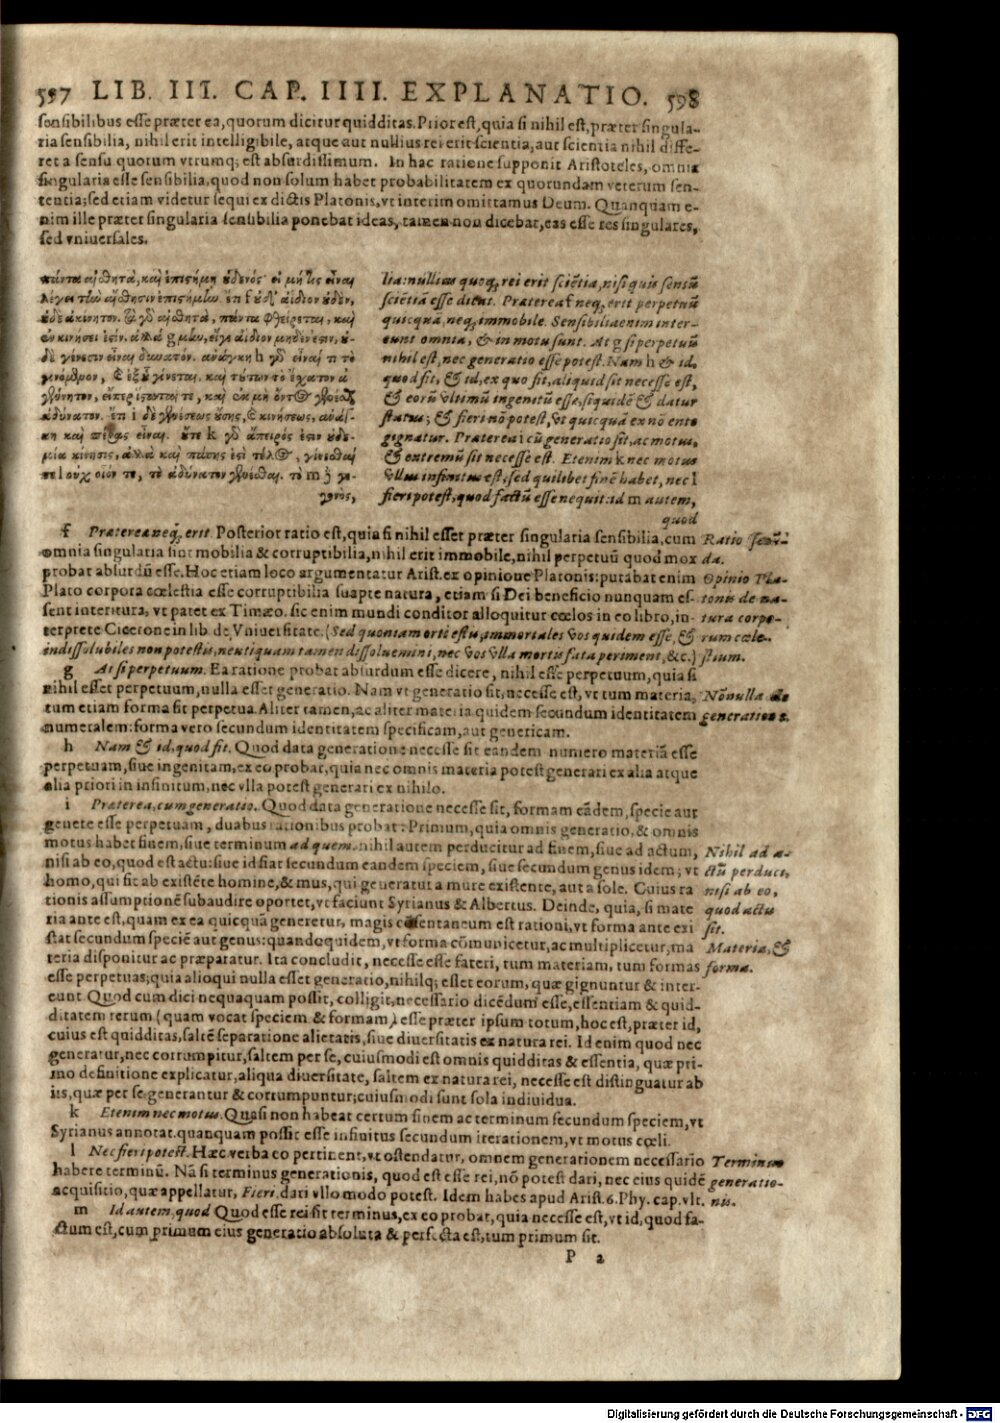 597 LIB. III. CAP. IIII. EXPLANATIO. 598
sensibilibus esse præter ea, quorum dicitur quidditas. Prior est, quia si nihil est, præter singula-
ria sensibilia, nihil erit intelligibile, atque aut nullius rei erit scientia, aut scientia nihil diffe-
ret a sensu quorum vtrumq; est absurdissimum. In hac ratione supponit Aristoteles, omnia
singularia esse sensibilia, quod non solum habet probabilitatem ex quorundam veterum sen-
tentia; sed etiam videtur sequi ex dictis Platonis, vt interim omittamus Deum. Quanquam e-
nim ille præter singularia sensibilia ponebat ideas, tamen non dicebat, eas esse res singulares,
sed vniuersales.
πάντα αἰσθητὰ, καὶ ἐπιστήμη οὐδενός· εἰ μή τις εἶναι
λέγει τὴν αἴσθησιν ἐπιστήμην. ἔτι f οὐδ' ἀΐδιον οὐδὲν,
οὐδὲ ἀκίνητον. τὰ γὰρ αἰσθητὰ, πάντα φθείρεται, καὶ
ἐν κινήσει ἐστίν. ἀλλὰ g μὴν, εἴγε ἀΐδιον μηδέν ἐστιν, οὐ-
δὲ γένεσιν εἶναι δυνατόν. ἀνάγκη h γὰρ εἶναί τι τὸ
γενόμενον, καὶ ἐξ οὗ γίνεται. καὶ τούτων τὸ ἔσχατον ἀ
γέννητον, εἴπερ ἵσταταί τε, καὶ ἐκ μὴ ὄντος γενέσθαι
ἀδύνατον. ἔτι i δὲ γενέσεως οὔσης, καὶ κινήσεως, ἀνάγ-
κη καὶ πέρας εἶναι. οὔτε k γὰρ ἄπειρός ἐστιν οὐδε-
μία κίνησις, ἀλλὰ καὶ πάσης ἐστὶ τέλος, γίνεσθαί
τε l οὐχ οἷόν τε, τὸ ἀδύνατον γενέσθαι. τὸ m δὲ γε-
γονὸς,
lia: nullius quoq, rei erit sciẽtia, nisi quis sensũ
sciẽtiã esse dicat. Præterea f neq, erit perpetuũ
quicquã, neq, immobile. Sensibilia enim inter-
eunt omnia, & in motu sunt. At g si perpetuũ
nihil est, nec generatio esse potest. Nam h & id,
quod fit, & id, ex quo fit, aliquid sit necesse est,
& eorũ vltimũ ingenitũ esse, siquidẽ & datur
status; & fieri nõ potest, vt quicquã ex nõ ente
gignatur. Præterea i cũ generatio sit, ac motus,
& extremũ sit necesse est. Etenim k nec motus
vllus infinitus est, sed quilibet finẽ habet, nec l
fieri potest, quod factũ esse nequit: id m autem,
quod
f Præterea neq, erit. Posterior ratio est, quia si nihil esset præter singularia sensibilia, cum
omnia singularia sint mobilia & corruptibilia, nihil erit immobile, nihil perpetuũ quod mox
probat absurdũ esse. Hoc etiam loco argumentatur Arist. ex opinione Platonis: putabat enim
Plato corpora cœlestia esse corruptibilia suapte natura, etiam si Dei beneficio nunquam es-
sent interitura, vt patet ex Timæo. sic enim mundi conditor alloquitur cœlos in eo libro, in-
terprete Cicerone in lib. de Vniuersitate. (Sed quoniam orti estis, immortales vos quidem esse, &
indissolubiles non potestis, neutiquam tamen dissoluemini, nec vos vlla mortis fata periment, &c.)
g At si perpetuum. Ea ratione probat absurdum esse dicere, nihil esse perpetuum, quia si
nihil esset perpetuum, nulla esset generatio. Nam vt generatio sit, necesse est, vt tum materia,
tum etiam forma sit perpetua. Aliter tamen, ac aliter materia quidem secundum identitatem
numeralem: forma vero secundum identitatem specificam, aut genericam.
h Nam & id, quod fit. Quod data generatione necesse sit eandem numero materiã esse
perpetuam, siue ingenitam, ex eo probat, quia nec omnis materia potest generari ex alia atque
alia priori in infinitum, nec vlla potest generari ex nihilo.
i Præterea, cum generatio. Quod data generatione necesse sit, formam eãdem, specie aut
genere esse perpetuam, duabus rationibus probat: Primum, quia omnis generatio, & omnis
motus habet finem, siue terminum ad quem. nihil autem perducitur ad finem, siue ad actum,
nisi ab eo, quod est actu: siue id fiat secundum eandem speciem, siue secundum genus idem; vt
homo, qui fit ab existẽte homine, & mus, qui generatur a mure existente, aut a sole. Cuius ra
tionis assumptionẽ subaudire oportet, vt faciunt Syrianus & Albertus. Deinde, quia, si mate
ria ante est, quam ex ea quicquã generetur, magis cõsentaneum est rationi, vt forma ante exi
stat secundum speciẽ aut genus: quandoquidem, vt forma cõmunicetur, ac multiplicetur, ma
teria disponitur ac præparatur. Ita concludit, necesse esse fateri, tum materiam, tum formas
esse perpetuas; quia alioqui nulla esset generatio, nihilq; esset eorum, quæ gignuntur & inter-
eunt. Quod cum dici nequaquam possit, colligit, necessario dicẽdum esse, essentiam & quid-
ditatem rerum (quam vocat speciem & formam) esse præter ipsum totum, hoc est, præter id,
cuius est quidditas, saltẽ separatione alietatis, siue diuersitatis ex natura rei. Id enim quod nec
generatur, nec corrumpitur, saltem per se, cuiusmodi est omnis quidditas & essentia, quæ pri-
mo definitione explicatur, aliqua diuersitate, saltem ex natura rei, necesse est distinguatur ab
iis, quæ per se generantur & corrumpuntur; cuiusmodi sunt sola indiuidua.
k Etenim nec motus. Quasi non habeat certum finem ac terminum secundum speciem, vt
Syrianus annotat. quanquam possit esse infinitus secundum iterationem, vt motus cœli.
l Nec fieri potest. Hæc verba eo pertinent, vt ostendatur, omnem generationem necessario
habere terminũ. Nã si terminus generationis, quod est esse rei, nõ potest dari, nec eius quidẽ
acquisitio, quæ appellatur, Fieri, dari vllo modo potest. Idem habes apud Arist. 6. Phy. cap. vlt.
m Id autem, quod Quod esse rei sit terminus, ex eo probat, quia necesse est, vt id, quod fa-
ctum est, cum primum eius generatio absoluta & perfecta est, tum primum sit.
P 2
Ratio secũ-
da.
Opinio Pla-
tonis de na-
tura corpo-
rum cœle-
stium.
Nõ nulla
generatio
Nihil ad a-
ctũ perduci,
nisi ab eo,
quod actu
sit.
Materia, &
forma.
Terminus
generatio-
nis.
Digitalisierung gefördert durch die Deutsche Forschungsgemeinschaft - DFG